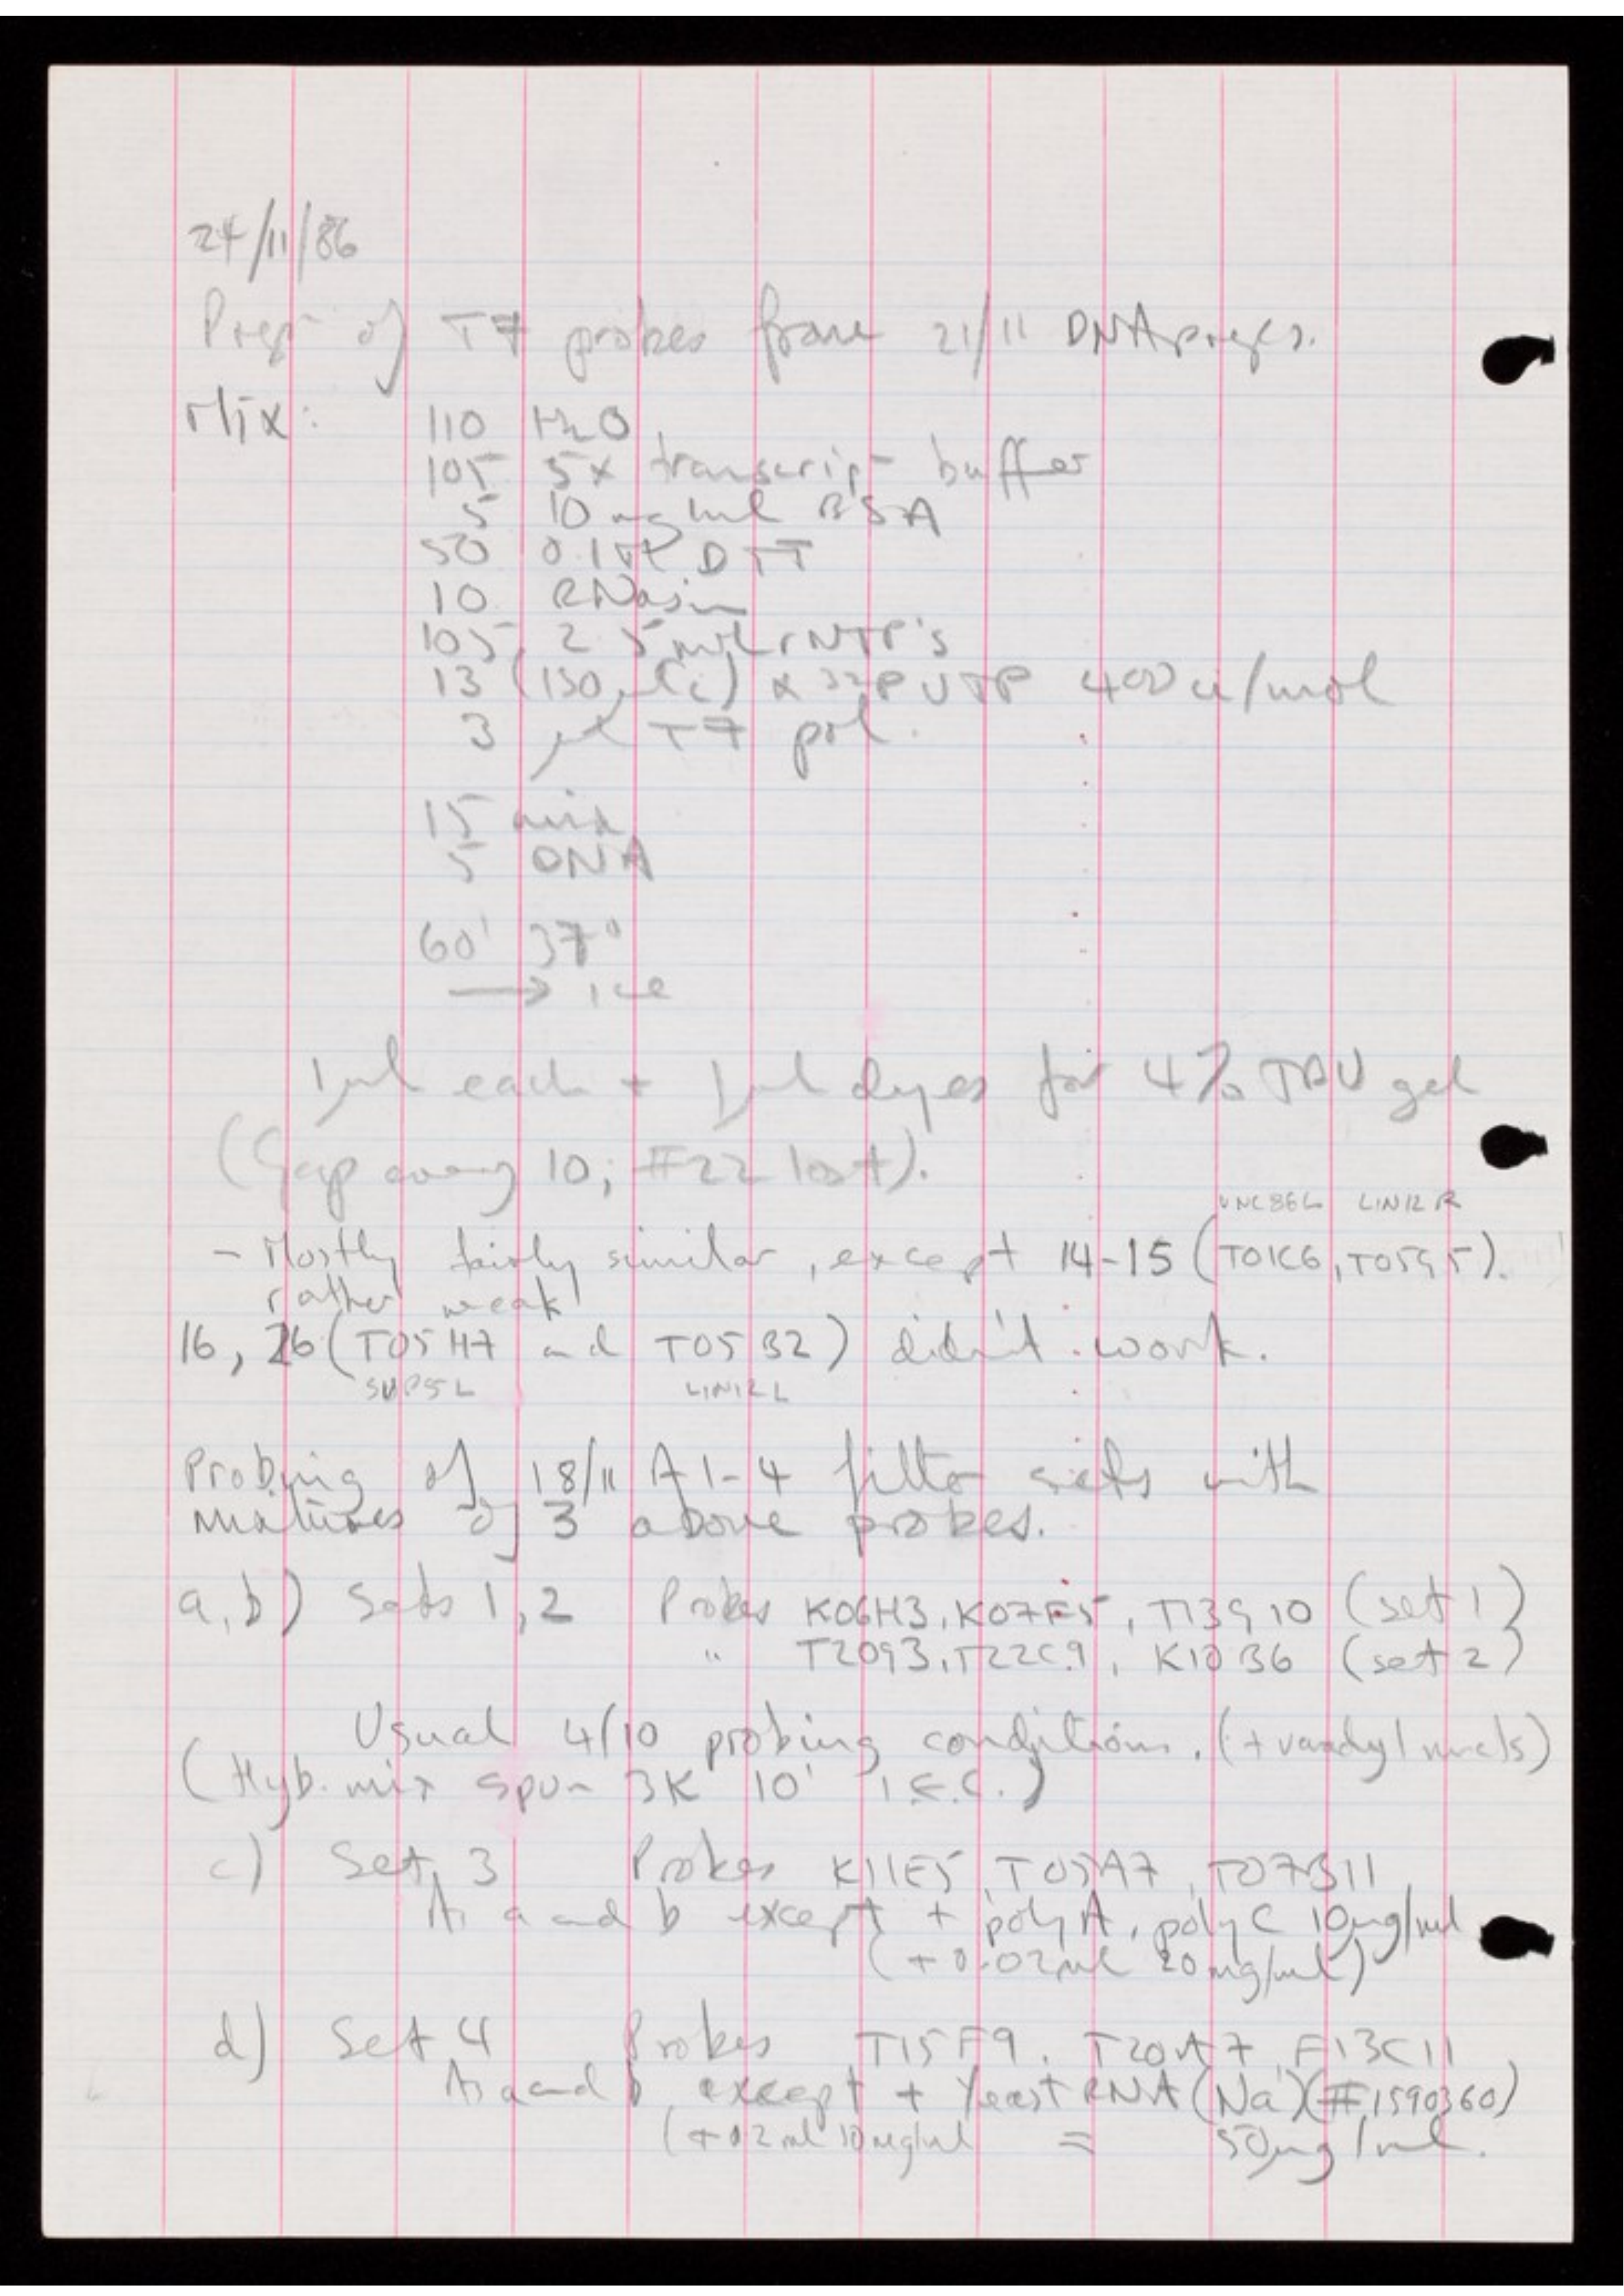 24/11/86
Prepn of T7 probes from 21/11 DNA preps.
Mix: 110 H2O
105 5x transcripn buffer
5 10 mg/ml BSA
50 0.1M DTT
10 RNasin
105 2.5mM rNTP's
13 (130 µCi) α 32P UTP 400 Ci/mol
3 µl T7 pol.
15 mix
5 DNA
60' 37°
→ ice
1µl each + 1µl dyes for 4% TBU gel
(Gap every 10; #22 lost).
UNC86L LIN12R
- Mostly fairly similar, except 14-15 (T01C6, T05G5).
rather weak
16, 26 (T05H7 and T05B2) didn't work.
SUP5L LIN12L
Probing of 18/11 A1-4 filter sets with
mixtures of 3 above probes.
a,b) Sets 1,2 Probes K06H3, K07F5, T13G10 (set 1)
" T20G3, T22C9, K10B6 (set 2)
Usual 4/10 probing conditions. (+ vanadyl nucls)
(Hyb. mix spun 3K 10' I.E.C.)
c) Set 3 Probes K11E5, T05A7, T07B11
As a and b except + polyA, polyC 10µg/ml
(+ 0.02ml 20mg/ml)
d) Set 4 Probes T15F9, T20A7, F13C11
As a and b except + Yeast RNA (Na) (#1590360)
(+0.2ml 10mg/ml = 50µg/ml.